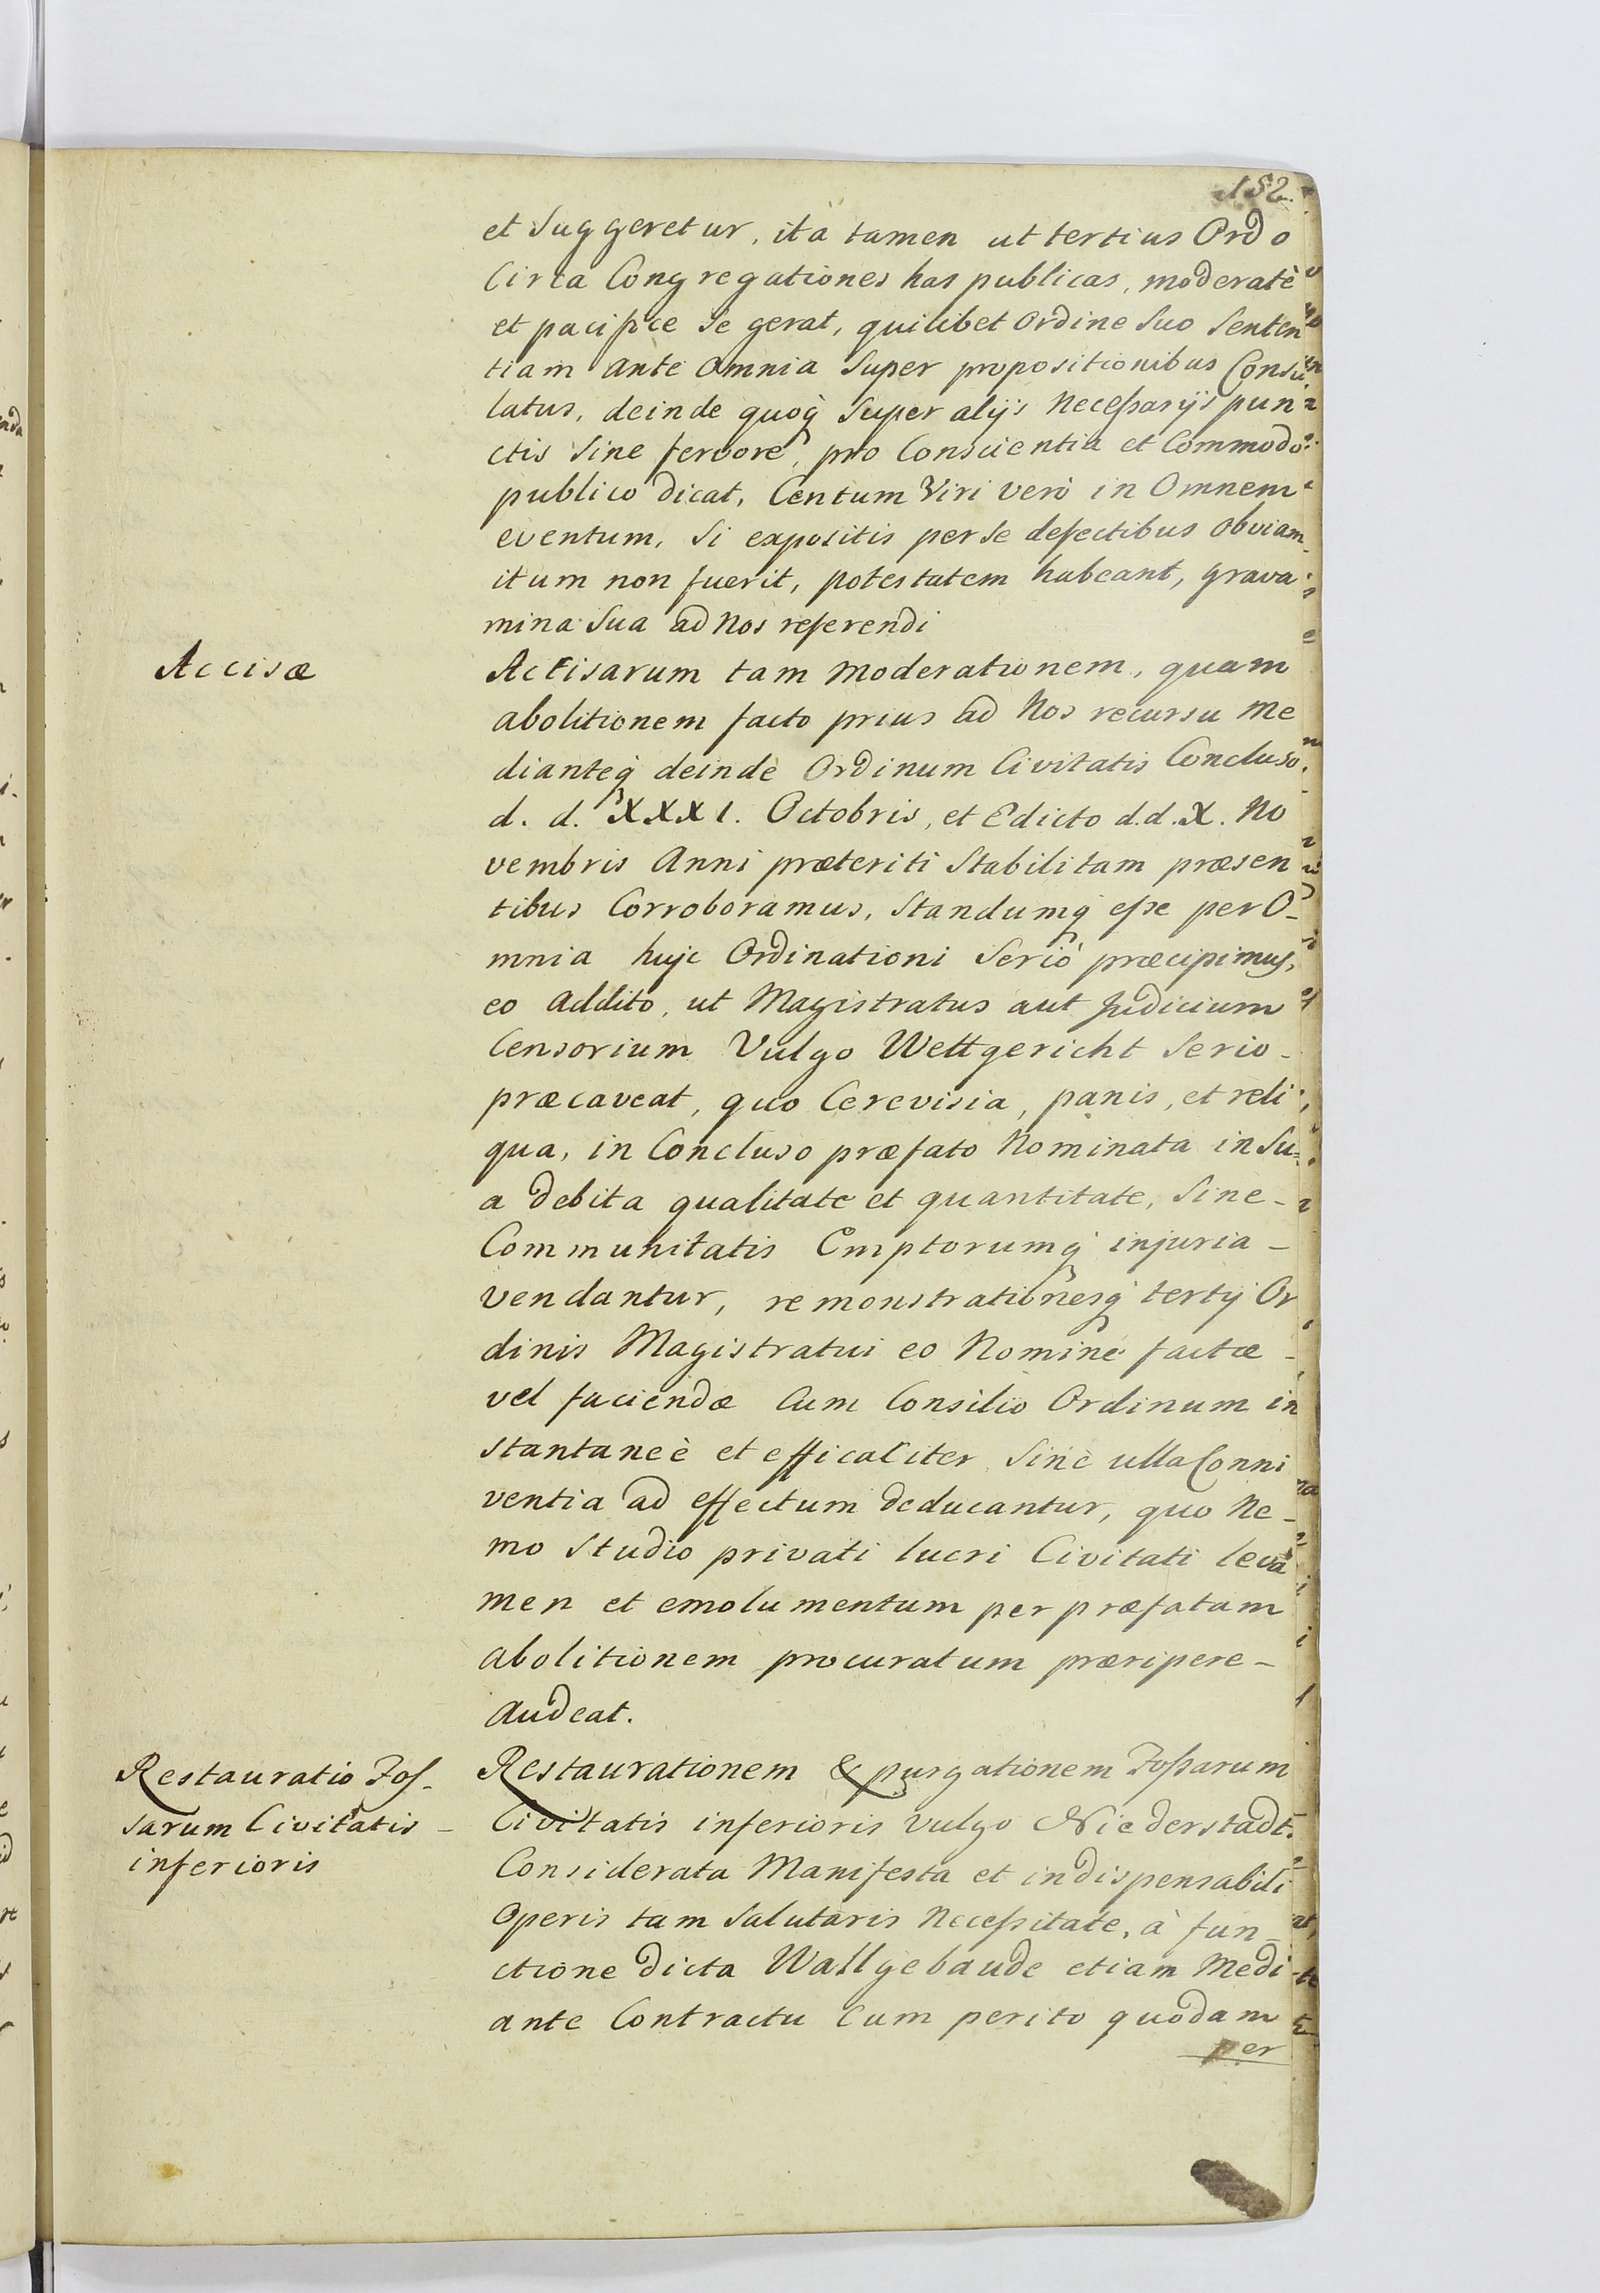 152.
et Suggeretur, ita tamen ut tertius Ordo
Circa Congregationes has publicas, moderatè
et pacifice se gerat, quilibet Ordine Suo Senten
tiam ante omnia Super propositionibus Consu-
latus, deinde quoq̀ Super alijs Neceßarijs pun
ctis Sine fervore, pro Conscientia et Commodo
publico dicat, Centum Viri verò in Omnem
eventum, Si expositis per se defectibus obviam_
itum non fuerit, potestatem habeant, grava
mina Sua ad Nos referendi
Accisæ
Accisarum tam Moderationem, quam
abolitionem facto prius ad Nos recursu Me
dianteq̀ deinde Ordinum Civitatis Concluso
d. d. XXXI. Octobris, et Edicto d.d. X. No
vembris Anni præteriti Stabilitam præsen
tibus Corroboramus, Standumq̀ eße per O_
mnia hujc Ordinationi Seriò præcipimus,
eo addito, ut Magistratus aut Judicium
Censorium Vulgo Wettgericht Serio_
præcaveat, quo Cerevisia, panis, et reli
qua, in Concluso præfato Nominata in Su=
a debita qualitate et quantitate, Sine_
Communitatis Emptorumq̀ injuria_
vendantur, remonstrationesq̀ tertij Or
dinis Magistratui eo Nomine factæ_
vel faciendæ Cum Consilio Ordinum in
stantaneè et efficaciter Sine ulla Conni
ventia ad effectum deducantur, quo Ne_
mo Studio privati lucri Civitati leva
men et emolumentum per præfatam
abolitionem procuratum præripere_
audeat.
Restauratio Fos_
sarum Civitatis_
inferioris
Restaurationem & purgationem Foßarum
Civitatis inferioris vulgo Niederstadt.
Considerata Manifesta et indispensabili
Operis tam Salutaris Neceßitate, à fun_
ctione dicta Wallgebaude etiam Medi
ante Contractu Cum perito quodam
per